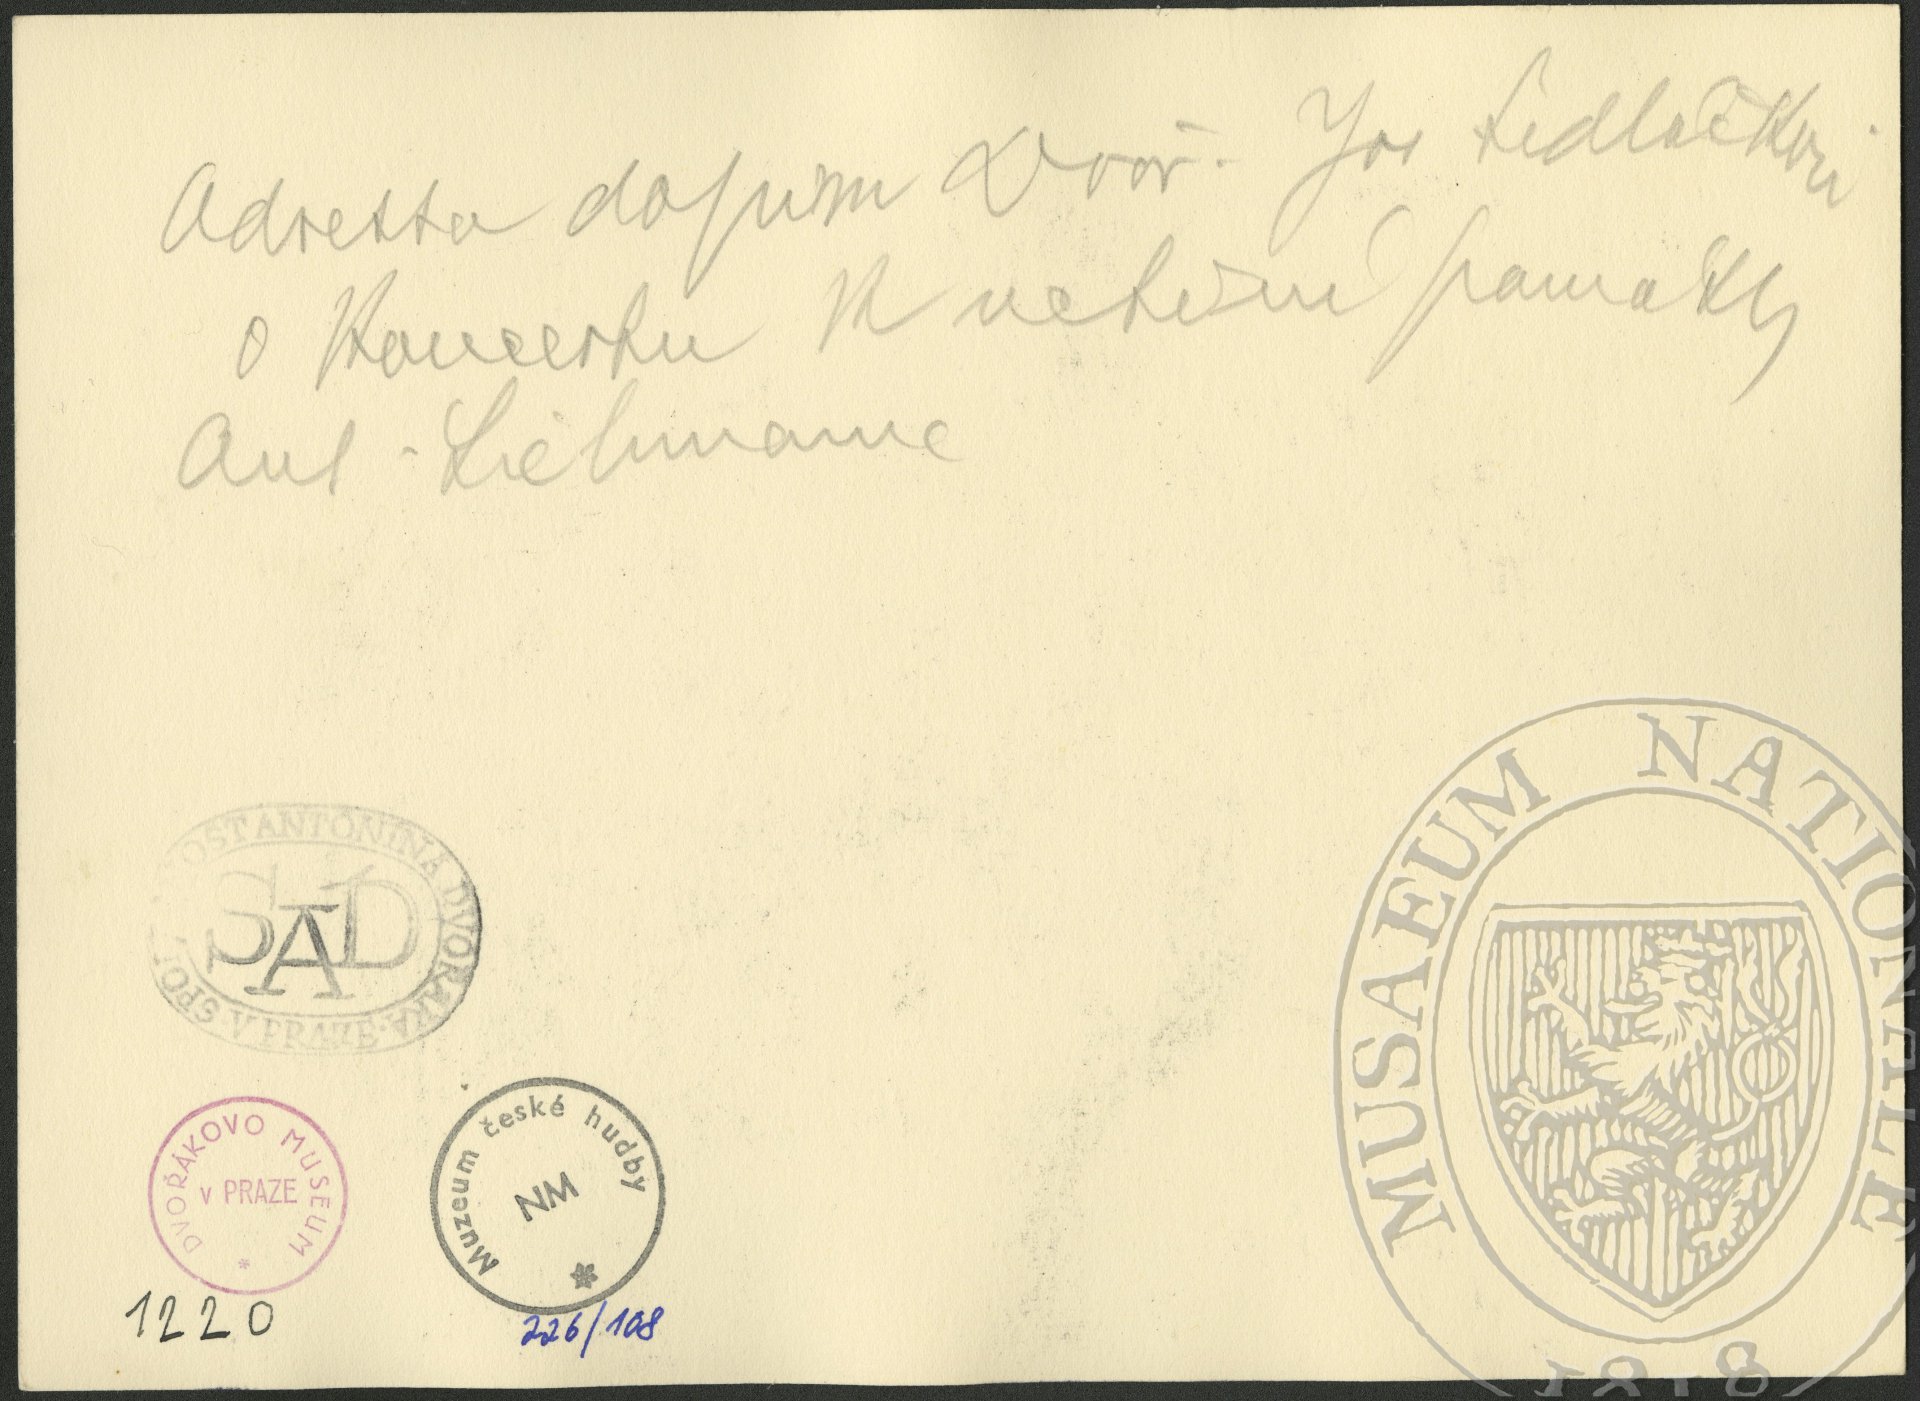 Adressa dopisu Dvoř. Jos Sedláčkovi
o Koncertu K uctění památky
Ant. Liehmanna
SPOLEČNOST ANTONÍNA DVOŘÁKA · V PRAZE ·
SAD
DVOŘÁKOVO MUSEUM
v PRAZE
*
Muzeum české hudby
NM
1220
226/108
MUSAEUM NATIONALE
1818